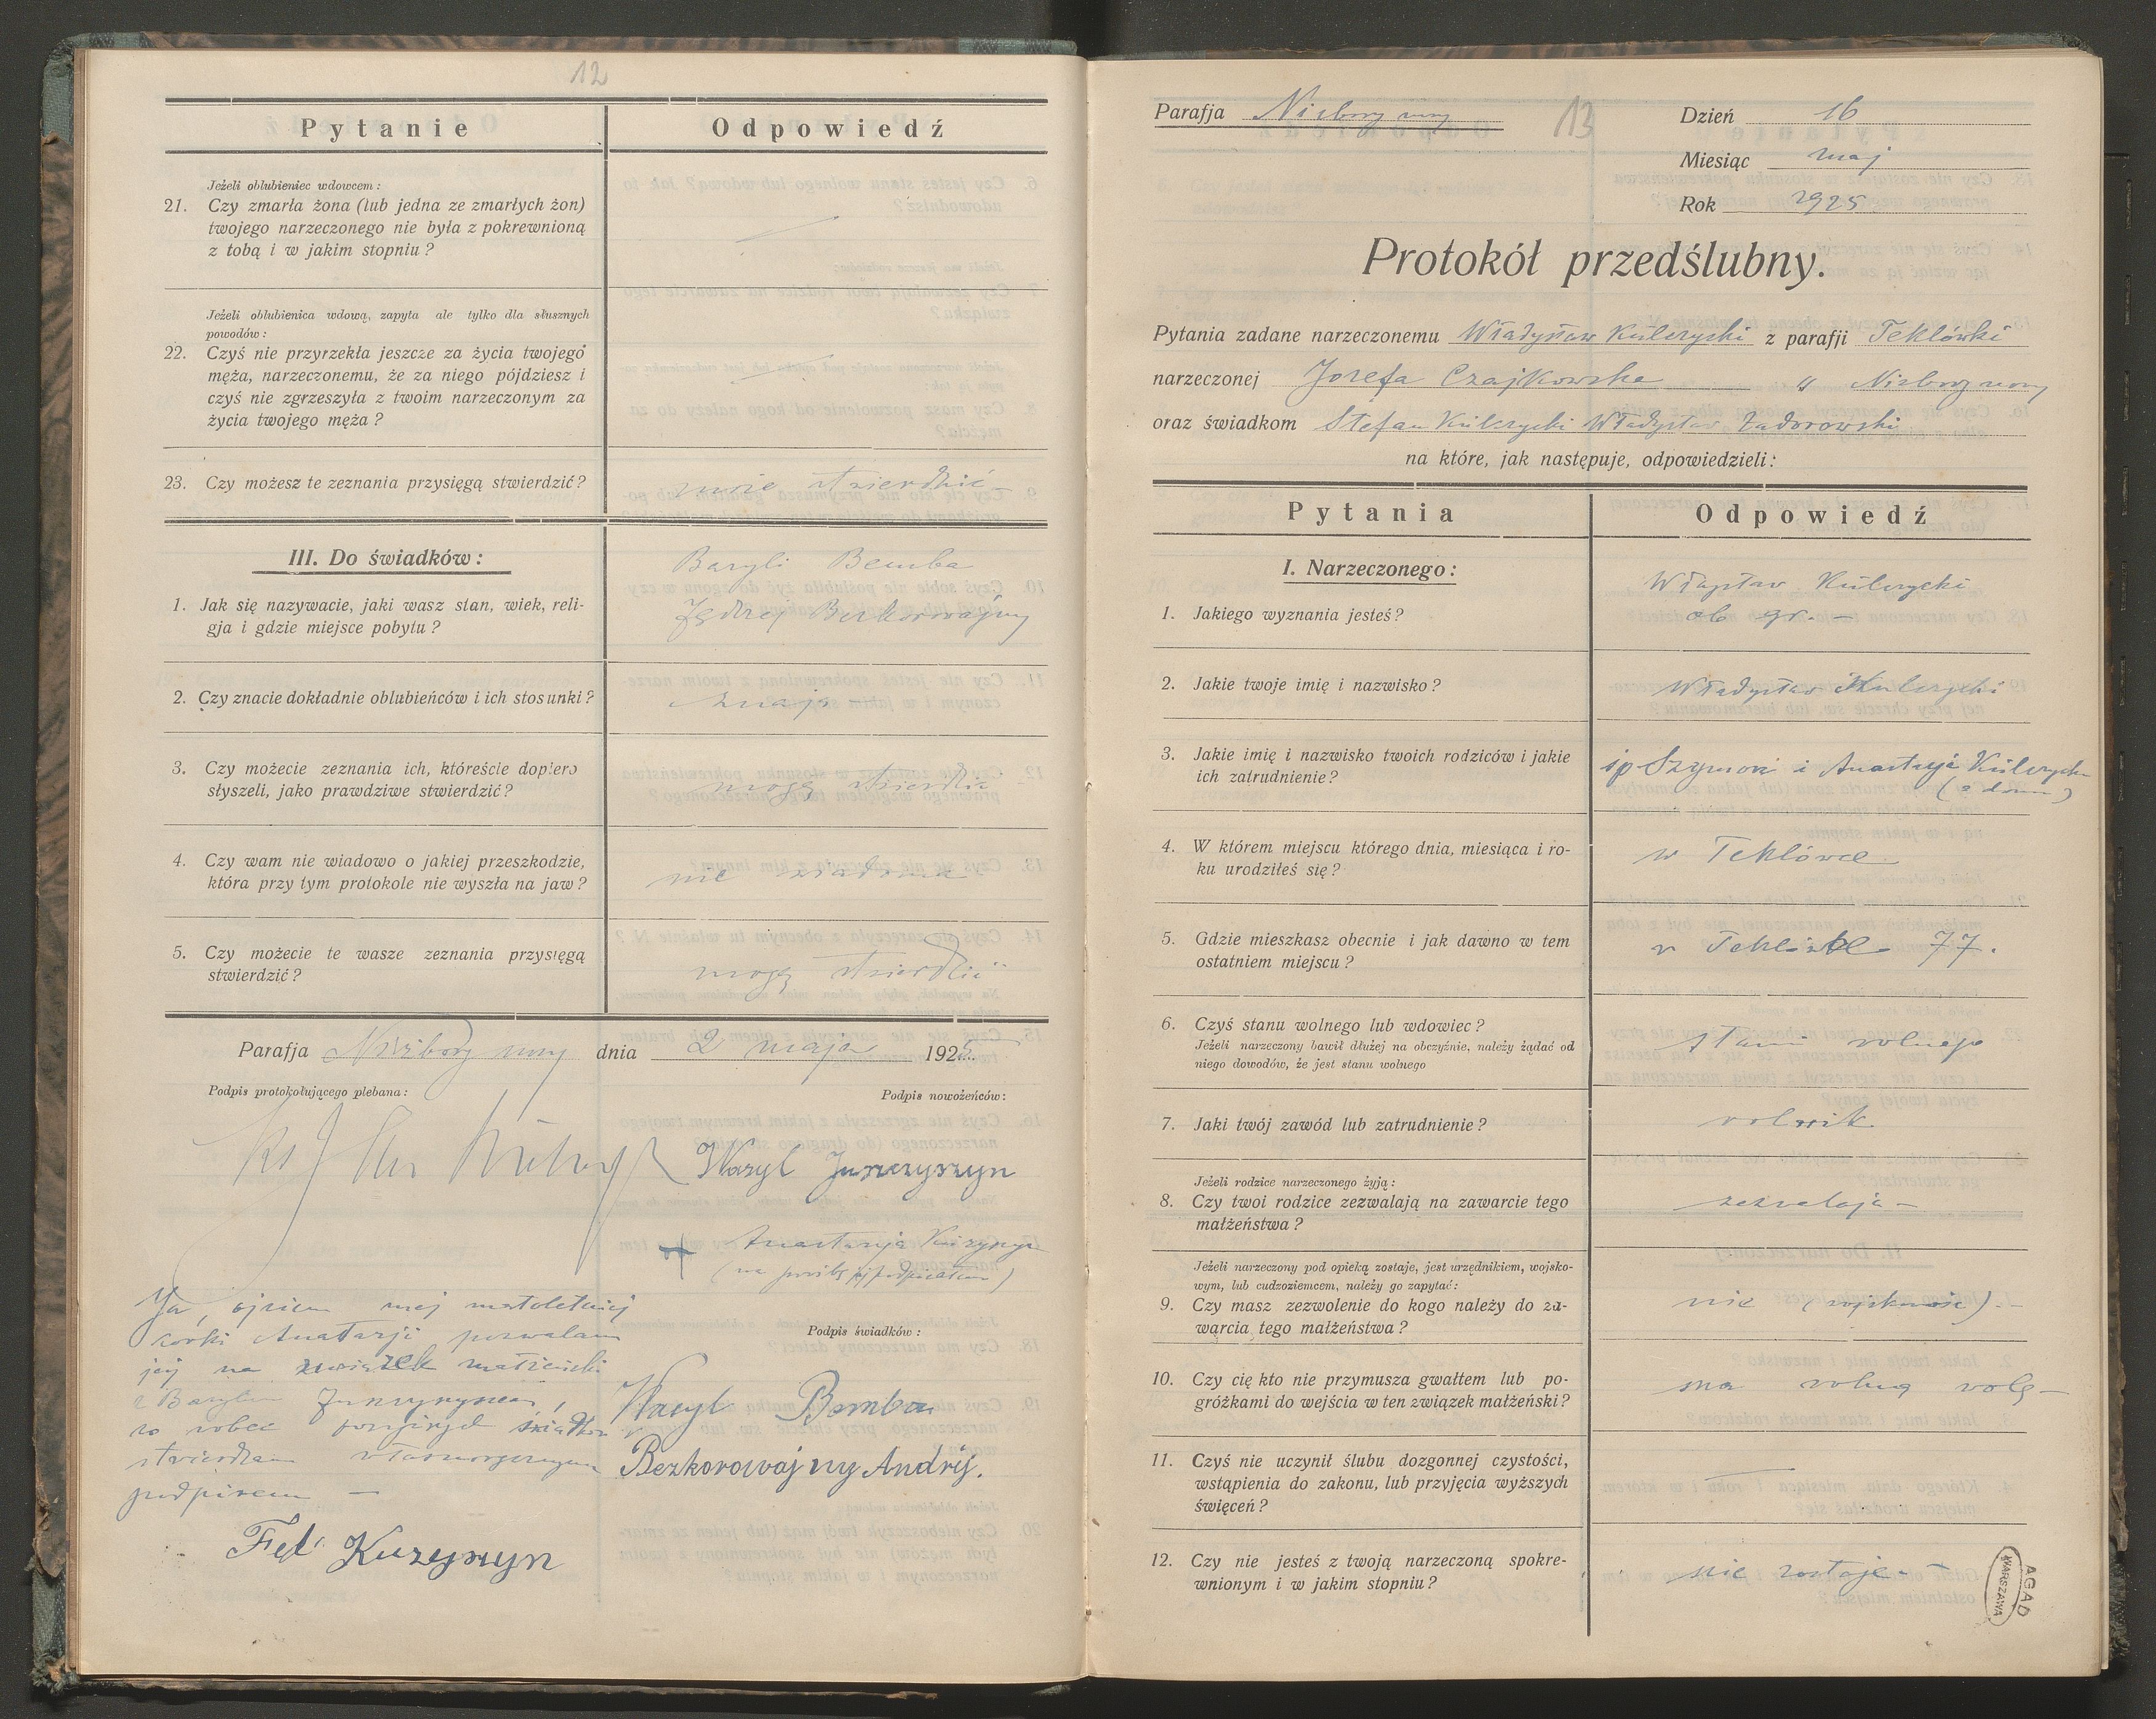 12
Pytanie
Odpowiedź
Jeżeli oblubieniec wdowcem:
21. Czy zmarła żona (lub jedna ze zmarłych żon)
twojego narzeczonego nie była z pokrewnioną
z tobą i w jakim stopniu?
Jeżeli oblubienica wdową, zapyta ale tylko dla słusznych
powodów:
22. Czyś nie przyrzekła jeszcze za życia twojego
męża, narzeczonemu, że za niego pójdziesz i
czyś nie zgrzeszyła z twoim narzeczonym za
życia twojego męża?
23. Czy możesz te zeznania przysięgą stwierdzić?
może stwierdzić
III. Do świadków:
Bazyli Bemba
1. Jak się nazywacie, jaki wasz stan, wiek, reli-
gja i gdzie miejsce pobytu?
Jędrzej Bezkorowajny
2. Czy znacie dokładnie oblubieńców i ich stosunki?
znają
3. Czy możecie zeznania ich, któreście dopiero
słyszeli, jako prawdziwe stwierdzić?
mogą stwierdzić
4. Czy wam nie wiadowo o jakiej przeszkodzie,
która przy tym protokole nie wyszła na jaw?
nie
5. Czy możecie te wasze zeznania przysięgą
stwierdzić?
mogą stwierdzić
Parafja Niżborg nowy dnia 2 maja 1925.
Podpis protokołującego plebana:
Podpis nowożeńców:
Ks
Wasyl Juszczyszyn
+ Anastazja Kuzyszyn
(na prośbę jej podpisałem)
Ja, ojciec mej małoletniej
córki Anastazji pozwalam
jej na związek małżeński
z Bazylim
co wobec świadków
stwierdzam własnoręcznym
podpisem —
Podpis świadków:
Wasyl Bemba
Bezkorowajny Andrij.
Fed' Kuzyszyn
Parafja Niżborg nowy
13
Dzień 16
Miesiąc maj
Rok 1925
Protokół przedślubny.
Pytania zadane narzeczonemu Władysław Kulczycki z parafji Teklówki
narzeczonej Józefa Czajkowska " Niżborg nowy
oraz świadkom Stefan Kulczycki Władysław Zadorowski
na które, jak następuje, odpowiedzieli:
Pytania
Odpowiedź
I. Narzeczonego:
Kulczycki
1. Jakiego wyznania jesteś?
ob gr. —
2. Jakie twoje imię i nazwisko?
Władysław Kulczycki
3. Jakie imię i nazwisko twoich rodziców i jakie
ich zatrudnienie?
śp Szymon i Anastazja Kulczycka
(z domu)
4. W którem miejscu którego dnia, miesiąca i ro-
ku urodziłeś się?
w Teklówce
5. Gdzie mieszkasz obecnie i jak dawno w tem
ostatniem miejscu?
w Teklówce 77.
6. Czyś stanu wolnego lub wdowiec?
Jeżeli narzeczony bawił dłużej na obczyźnie, należy żądać od
niego dowodów, że jest stanu wolnego
stanu wolnego
7. Jaki twój zawód lub zatrudnienie?
rolnik
Jeżeli rodzice narzeczonego żyją:
8. Czy twoi rodzice zezwalają na zawarcie tego
małżeństwa?
zezwalają —
Jeżeli narzeczony pod opieką zostaje, jest urzędnikiem, wojsko-
wym, lub cudzoziemcem, należy go zapytać:
9. Czy masz zezwolenie do kogo należy do za-
warcia tego małżeństwa?
nie
10. Czy cię kto nie przymusza gwałtem lub po-
gróżkami do wejścia w ten związek małżeński?
ma wolną wolę —
11. Czyś nie uczynił ślubu dozgonnej czystości,
wstąpienia do zakonu, lub przyjęcia wyższych
święceń?
12. Czy nie jesteś z twoją narzeczoną spokre-
wnionym i w jakim stopniu?
nie zostaje —
AGAD
WARSZAWA